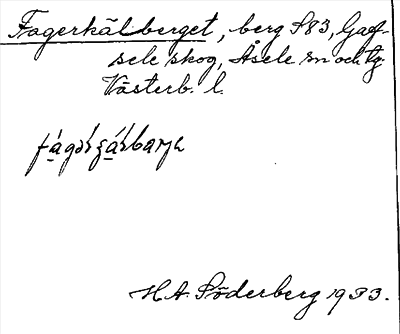 Fagerkälberget, berg S83, Gaf-
sele skog, Åsele sn och tg.
Västerb. l.
H. A. Söderberg 1933.